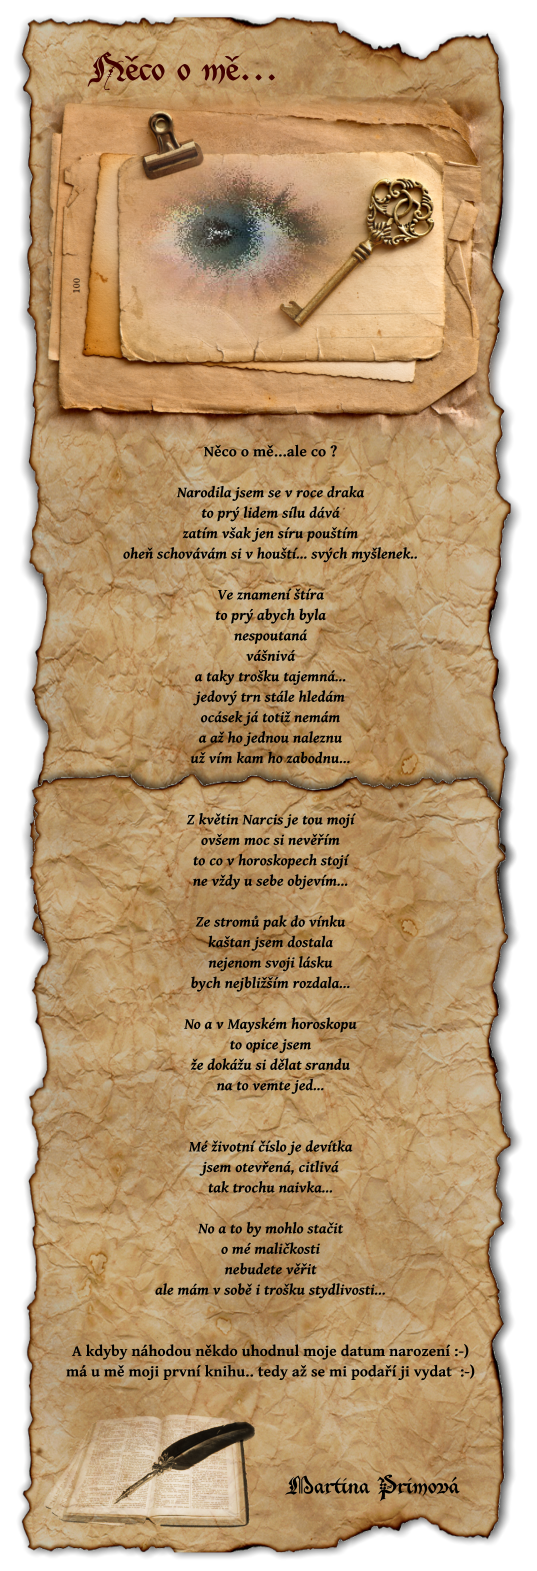 Něco o mě...
100
Něco o mě...ale co ?
Narodila jsem se v roce draka
to prý lidem sílu dává
zatím však jen síru pouštím
oheň schovávám si v houští... svých myšlenek..
Ve znamení štíra
to prý abych byla
nespoutaná
vášnivá
a taky trošku tajemná...
jedový trn stále hledám
ocásek já totiž nemám
a až ho jednou naleznu
už vím kam ho zabodnu...
Z květin Narcis je tou mojí
ovšem moc si nevěřím
to co v horoskopech stojí
ne vždy u sebe objevím...
Ze stromů pak do vínku
kaštan jsem dostala
nejenom svoji lásku
bych nejbližším rozdala...
No a v Mayském horoskopu
to opice jsem
že dokážu si dělat srandu
na to vemte jed...
Mé životní číslo je devítka
jsem otevřená, citlivá
tak trochu naivka...
No a to by mohlo stačit
o mé maličkosti
nebudete věřit
ale mám v sobě i trošku stydlivosti...
A kdyby náhodou někdo uhodnul moje datum narození :-)
má u mě moji první knihu.. tedy až se mi podaří ji vydat :-)
Martina Primová